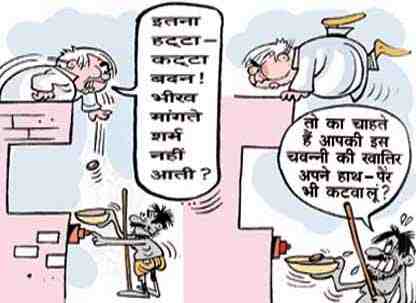 इतना
हट्टा-
कट्टा
बदन!
भीख
मांगते
शर्म
नहीं
आती?
तो का चाहते
हैं आपकी इस
चवन्नी की खातिर
अपने हाथ-पैर
भी कटवा लूं?